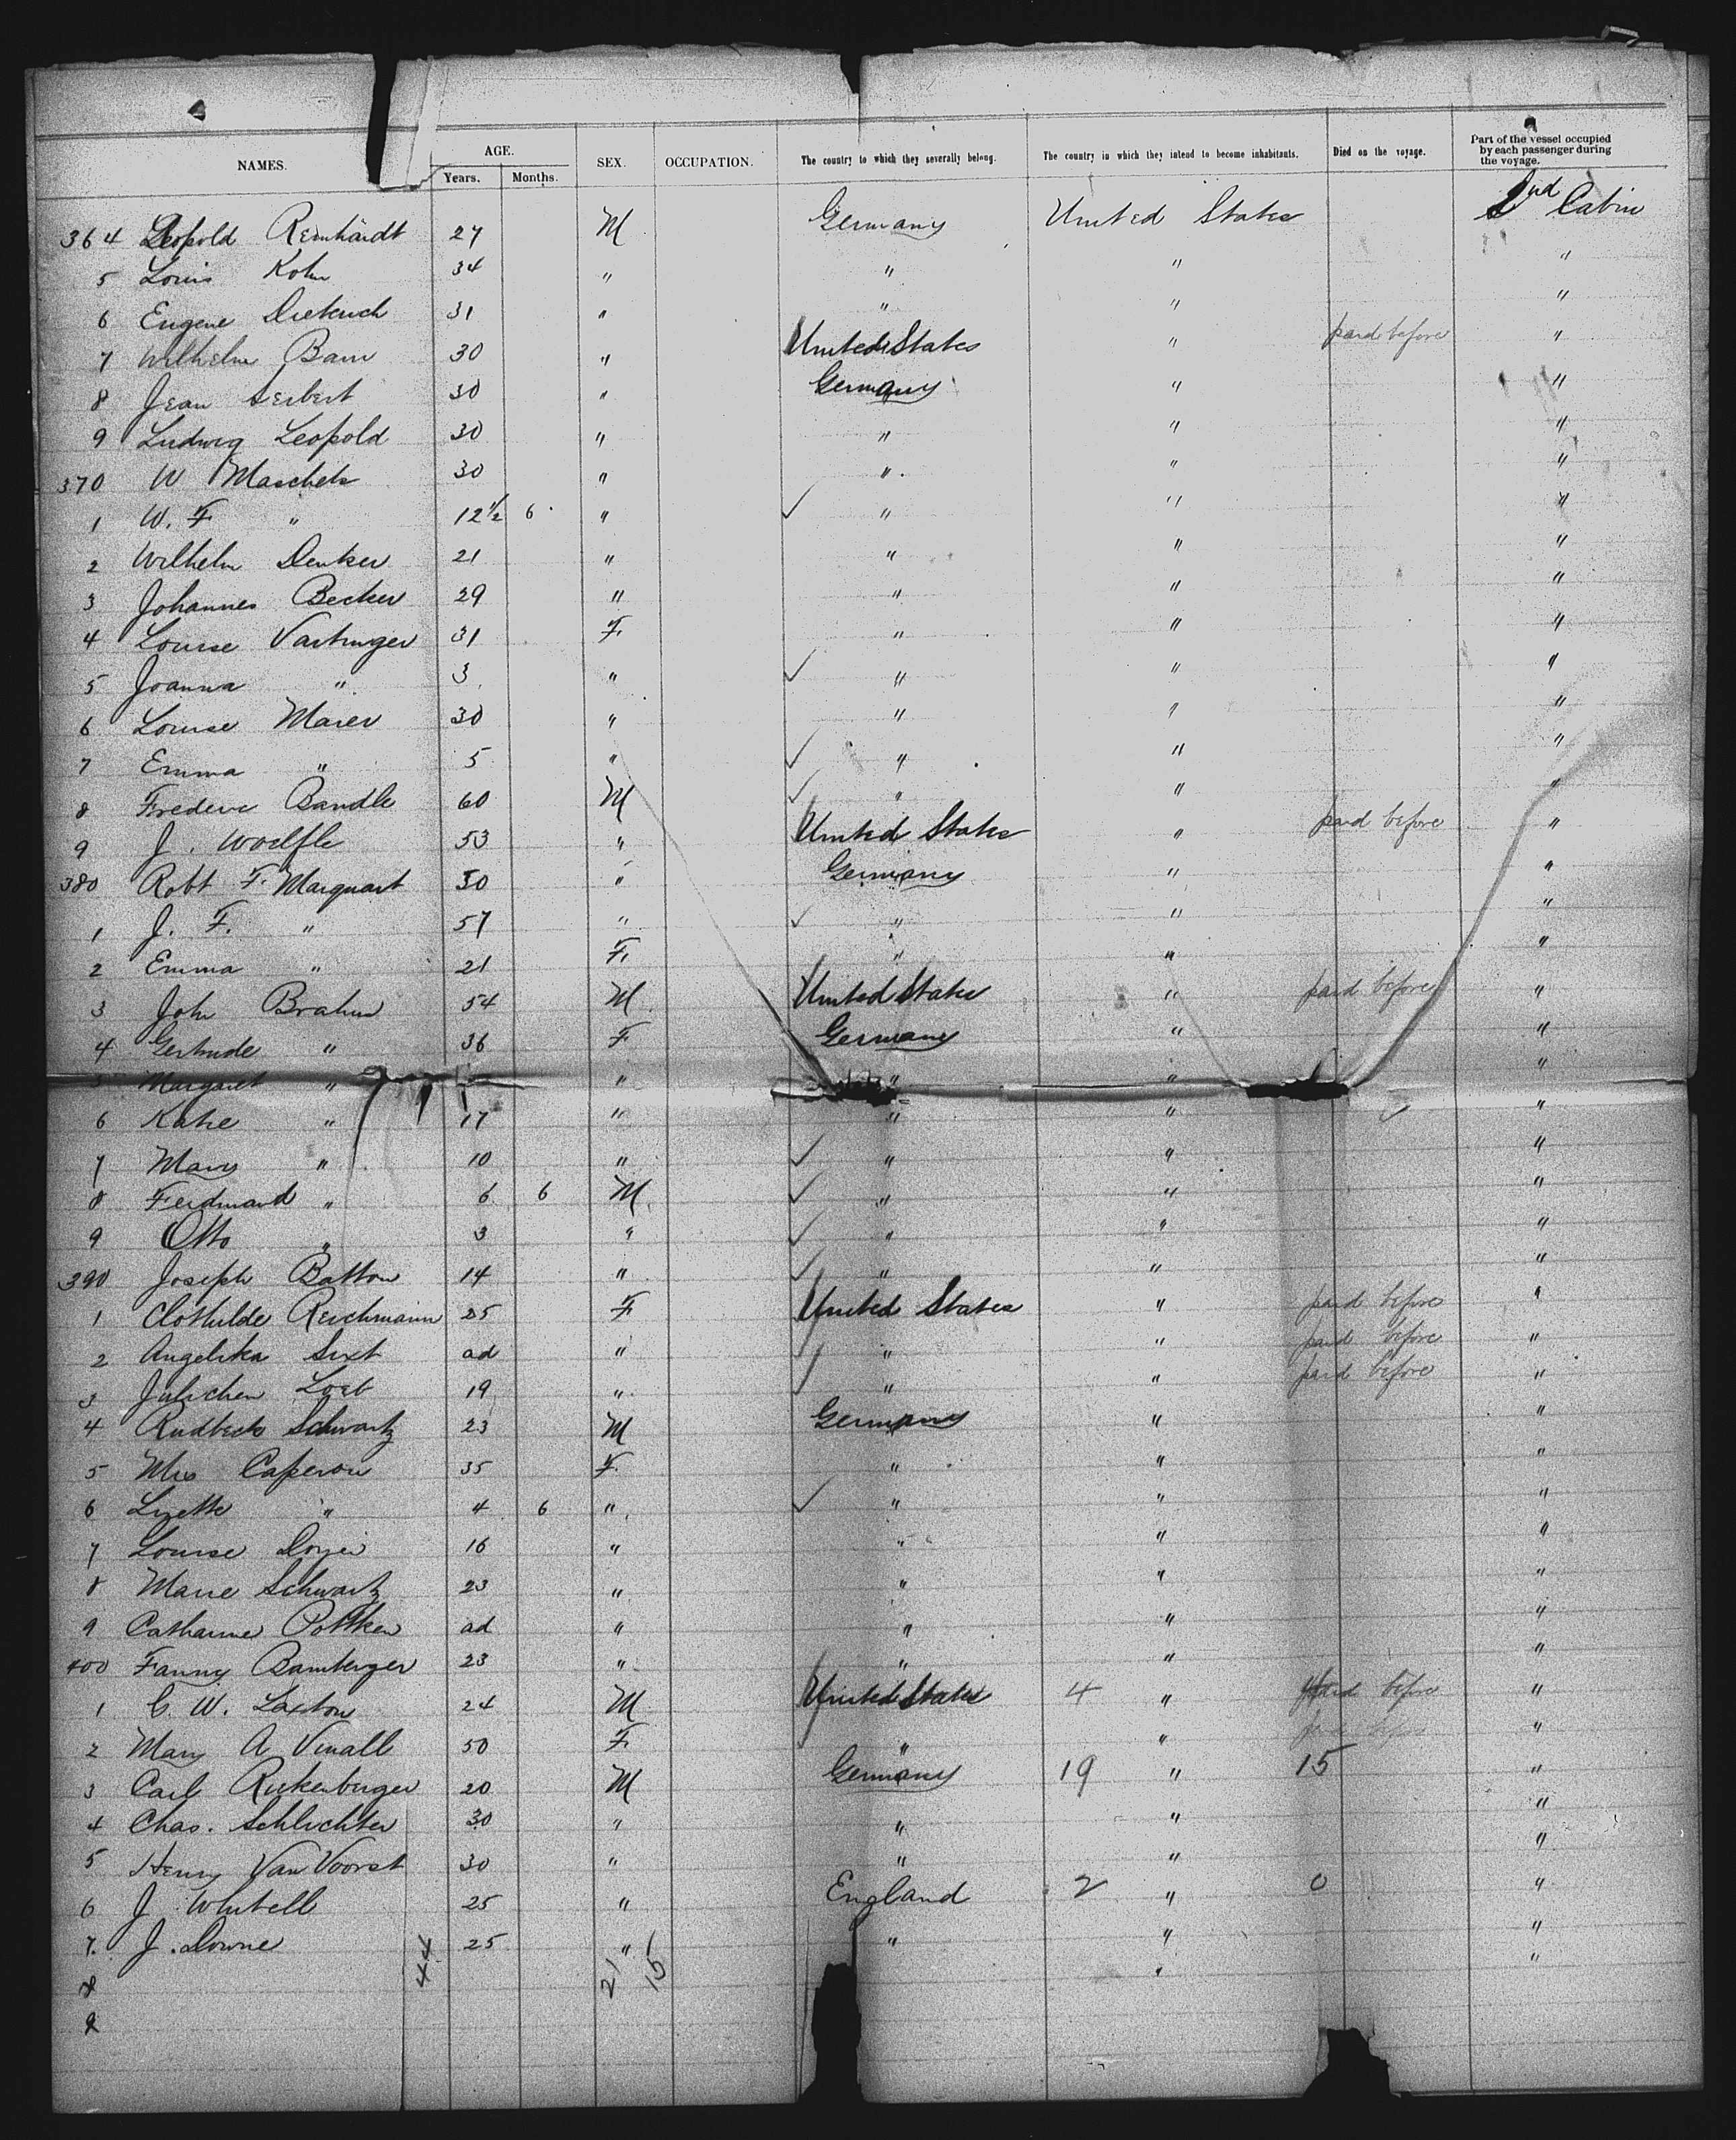 NAMES. AGE. Years. Months. SEX. OCCUPATION. The country to which they severally belong. The country in which they intend to become inhabitants. Died on the voyage. Part of the vessel occupied by each passenger during the voyage.
364 Leopold Reinhardt 27 M Germany United States 2nd Cabin
5 Louis Kohn 34 " " " "
6 Eugene Dieterich 31 " " " "
7 Wilhelm Baur 30 " United States " paid before "
8 Jean Seibert 30 " Germany " "
9 Ludwig Leopold 30 " " " "
370 W Maschek 30 " " " "
1 W. F " 12½ 6 " ✓ " " "
2 Wilhelm Denker 21 " " " "
3 Johannes Becker 29 " " " "
4 Louise Vartinger 31 F. " " "
5 Joanna " 3 " ✓ " " "
6 Louise Maier 30 " " " "
7 Emma " 5 " ✓ " " "
8 Frederic Bandle 60 M ✓ " " "
9 J. Woelfle 53 " United States " paid before "
380 Robt F. Marquart 30 " Germany " "
1 J. F. " 57 " ✓ " " "
2 Emma " 21 F. " " "
3 John Brahm 54 M. United States " paid before "
4 Gertrude " 36 F Germany " "
5 Margaret " " " " "
6 Katie " 17 " " " "
7 Mary " 10 " ✓ " " "
8 Ferdinand " 6 6 M. ✓ " " "
9 Otto " 3 " ✓ " " "
390 Joseph Batton 14 " ✓ " " "
1 Clothilde Reichmann 25 F United States " paid before "
2 Angelika Sixt ad " ✓ " " paid before "
3 Julichen Loeb 19 " ✓ " " paid before "
4 Rudbeck Schwartz 23 M Germany " "
5 Mrs Caperon 35 F. " " "
6 Lizette " 4 6 " ✓ " " "
7 Louise 16 " " " "
8 Marie Schwartz 23 " " " "
9 Catharine Pottken ad " " " "
400 Fanny Bamberger 23 " " " "
1 C. W. Laxton 24 M United States 4 " paid before "
2 Mary A Vinall 50 F. " " paid before "
3 Carl Rickenberger 20 M Germany 19 " 15 "
4 Chas. Schlichter 30 " " " "
5 Henry Van Voorst 30 " " " "
6 J. Whitell 25 " England 2 " 0 "
7. J. Downe 25 " " " "
8 44 21 15 " "
9